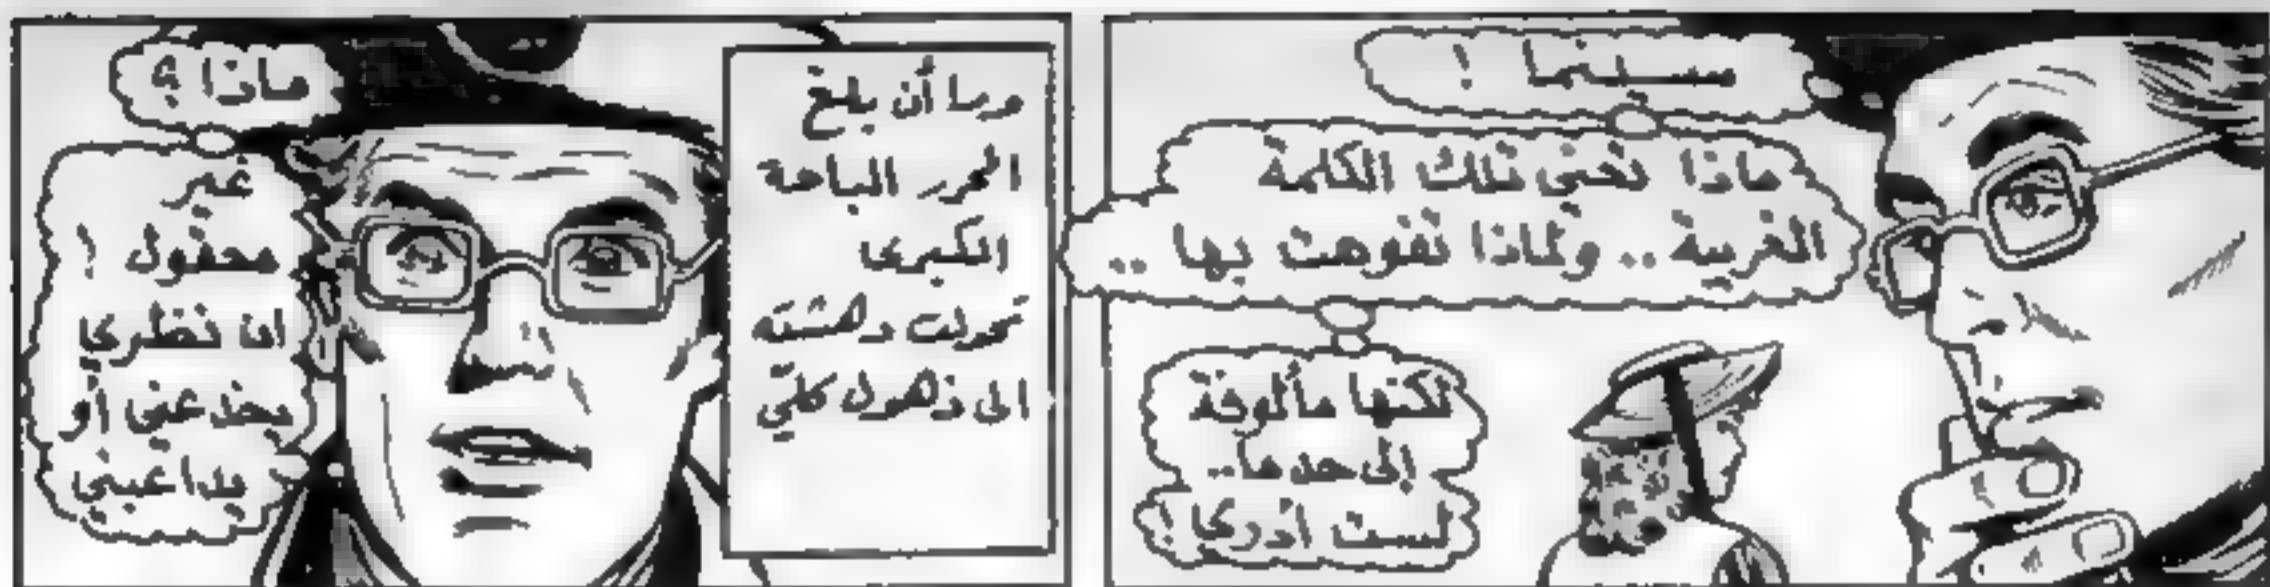 سينما !
ماذا تعني تلك الكلمة
الغريبة .. ولماذا تفوهت بها ..
لكنها مألوفة
إلى حد ما..
لست أدري !
وما أن بلغ
المحرر الباحة
الكبرى
تحولت دهشته
الى ذهول كلّي
ماذا ؟
غير
معقول !
ان نظري
يخدعني أو
يداعبني